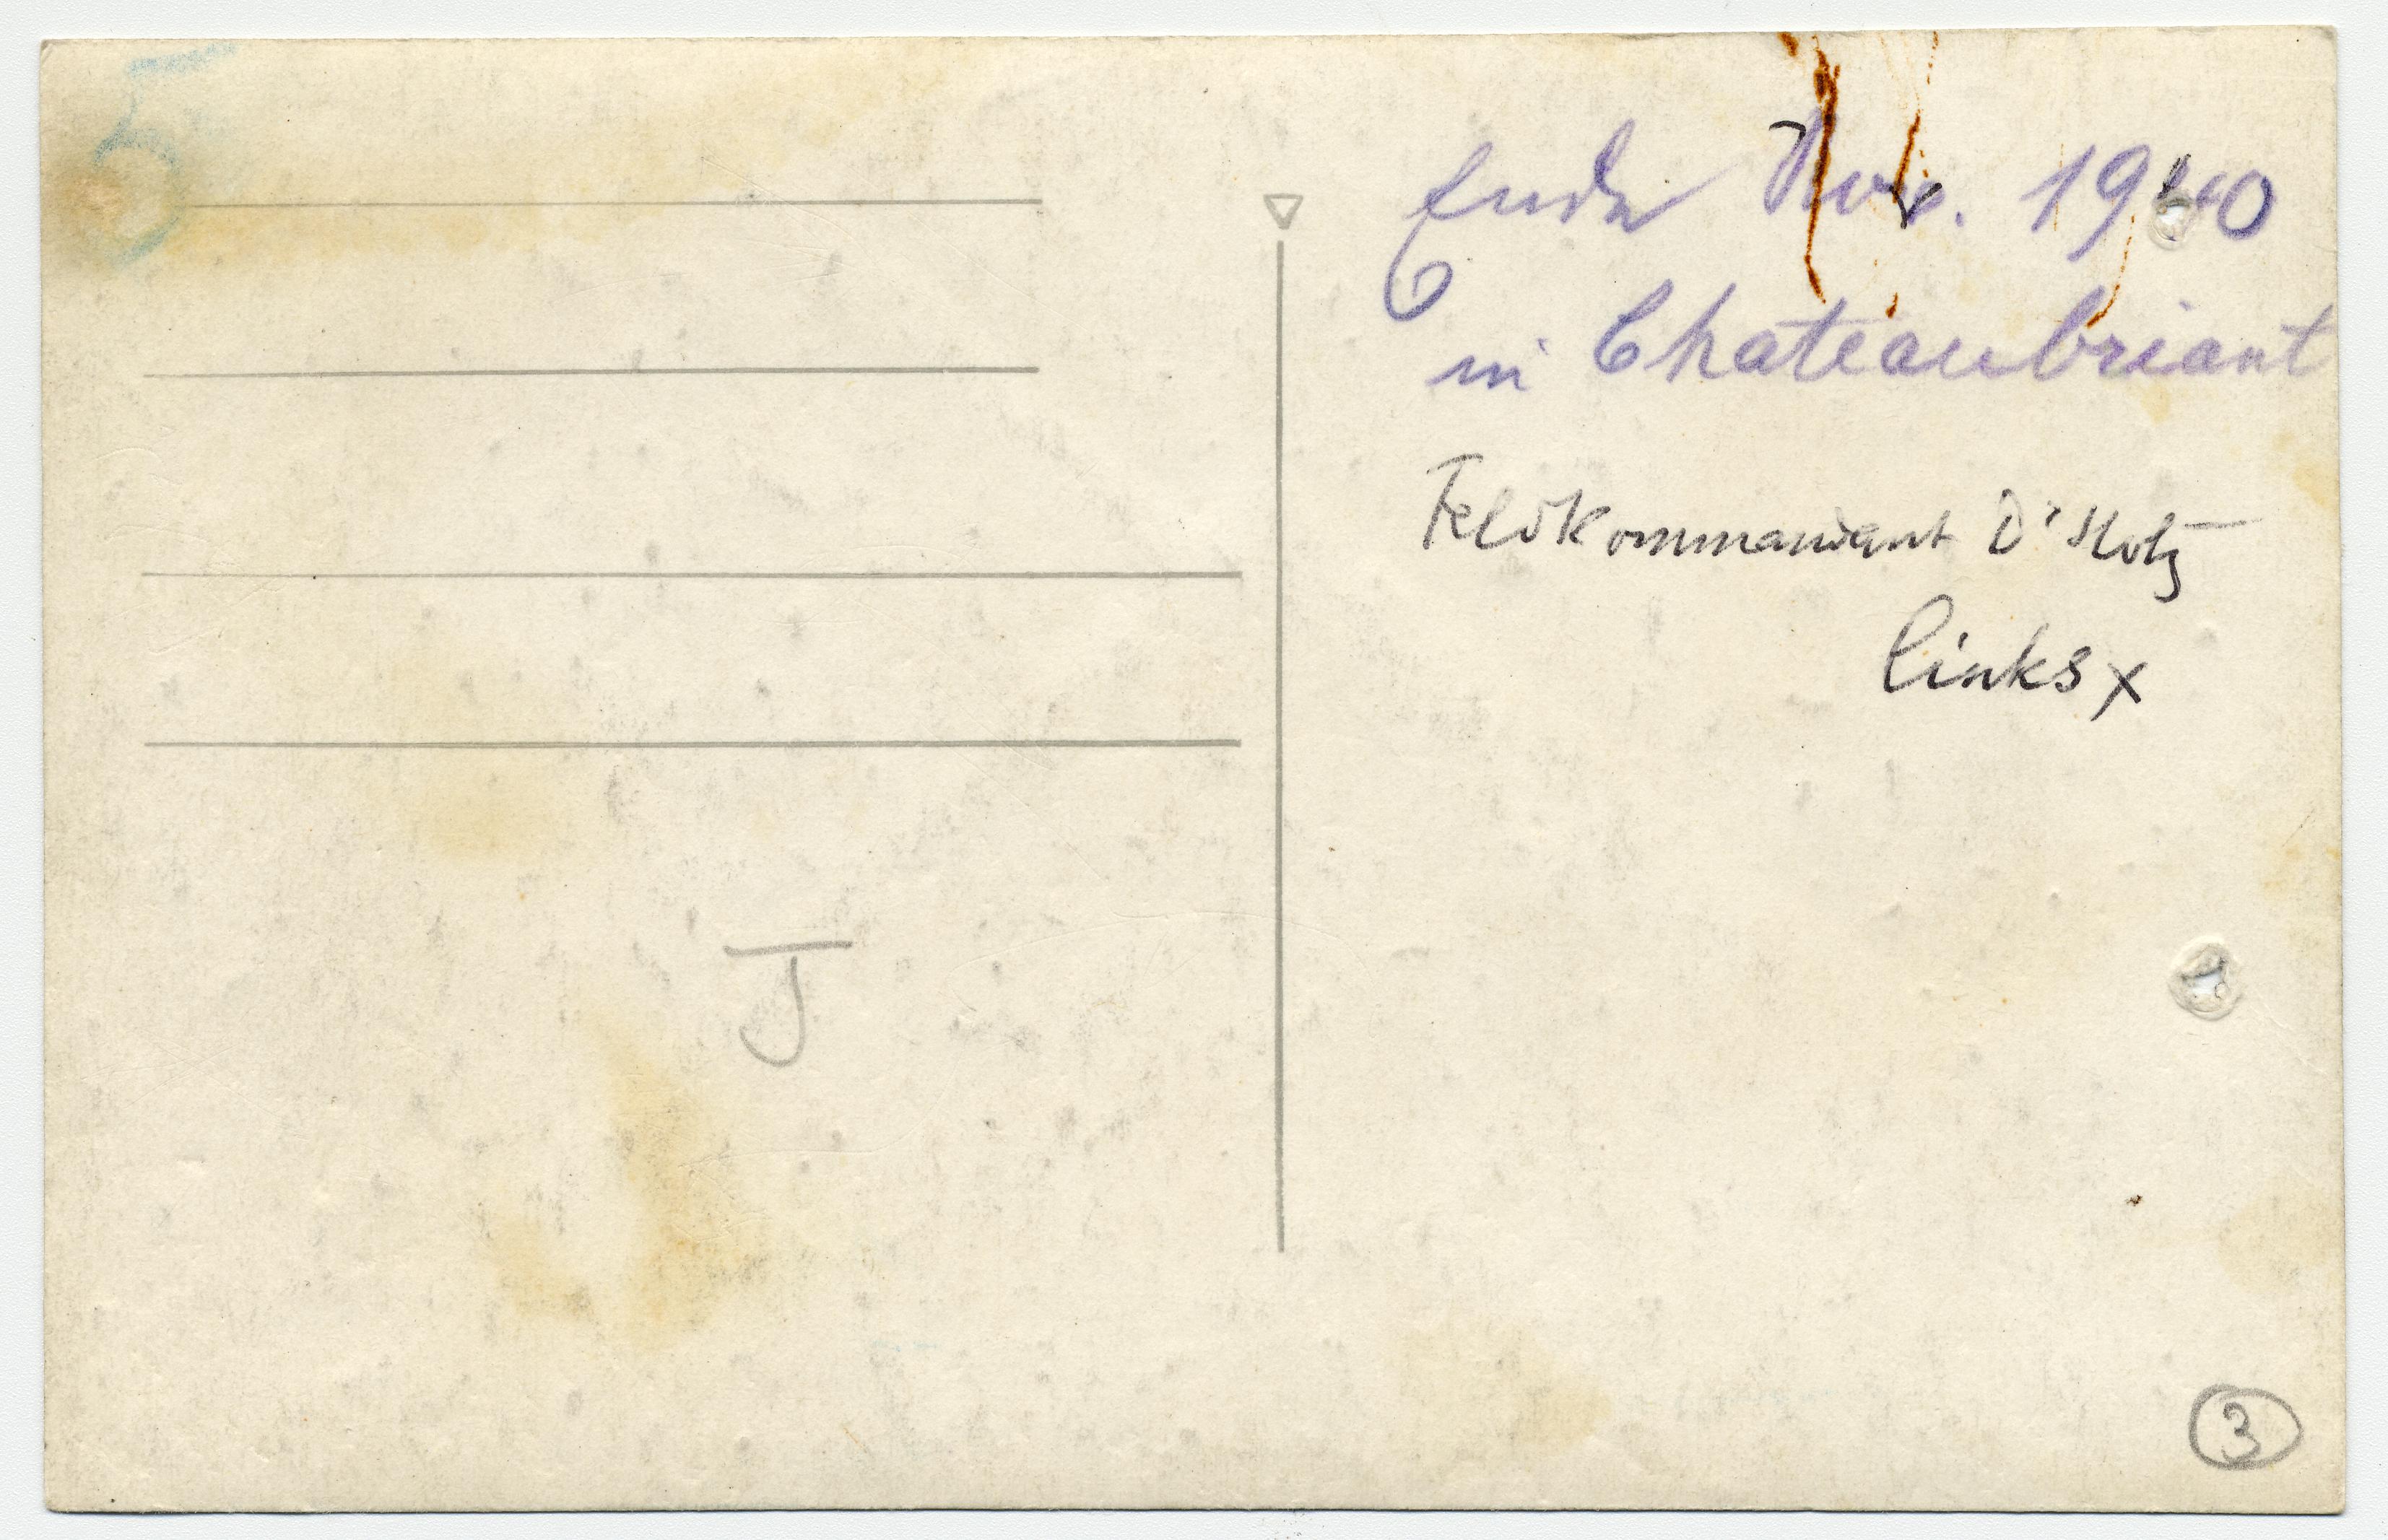 5
Ende Nov. 1940
in Chateaubriant
Feldkommandant Dr Hotz
links x
J
3